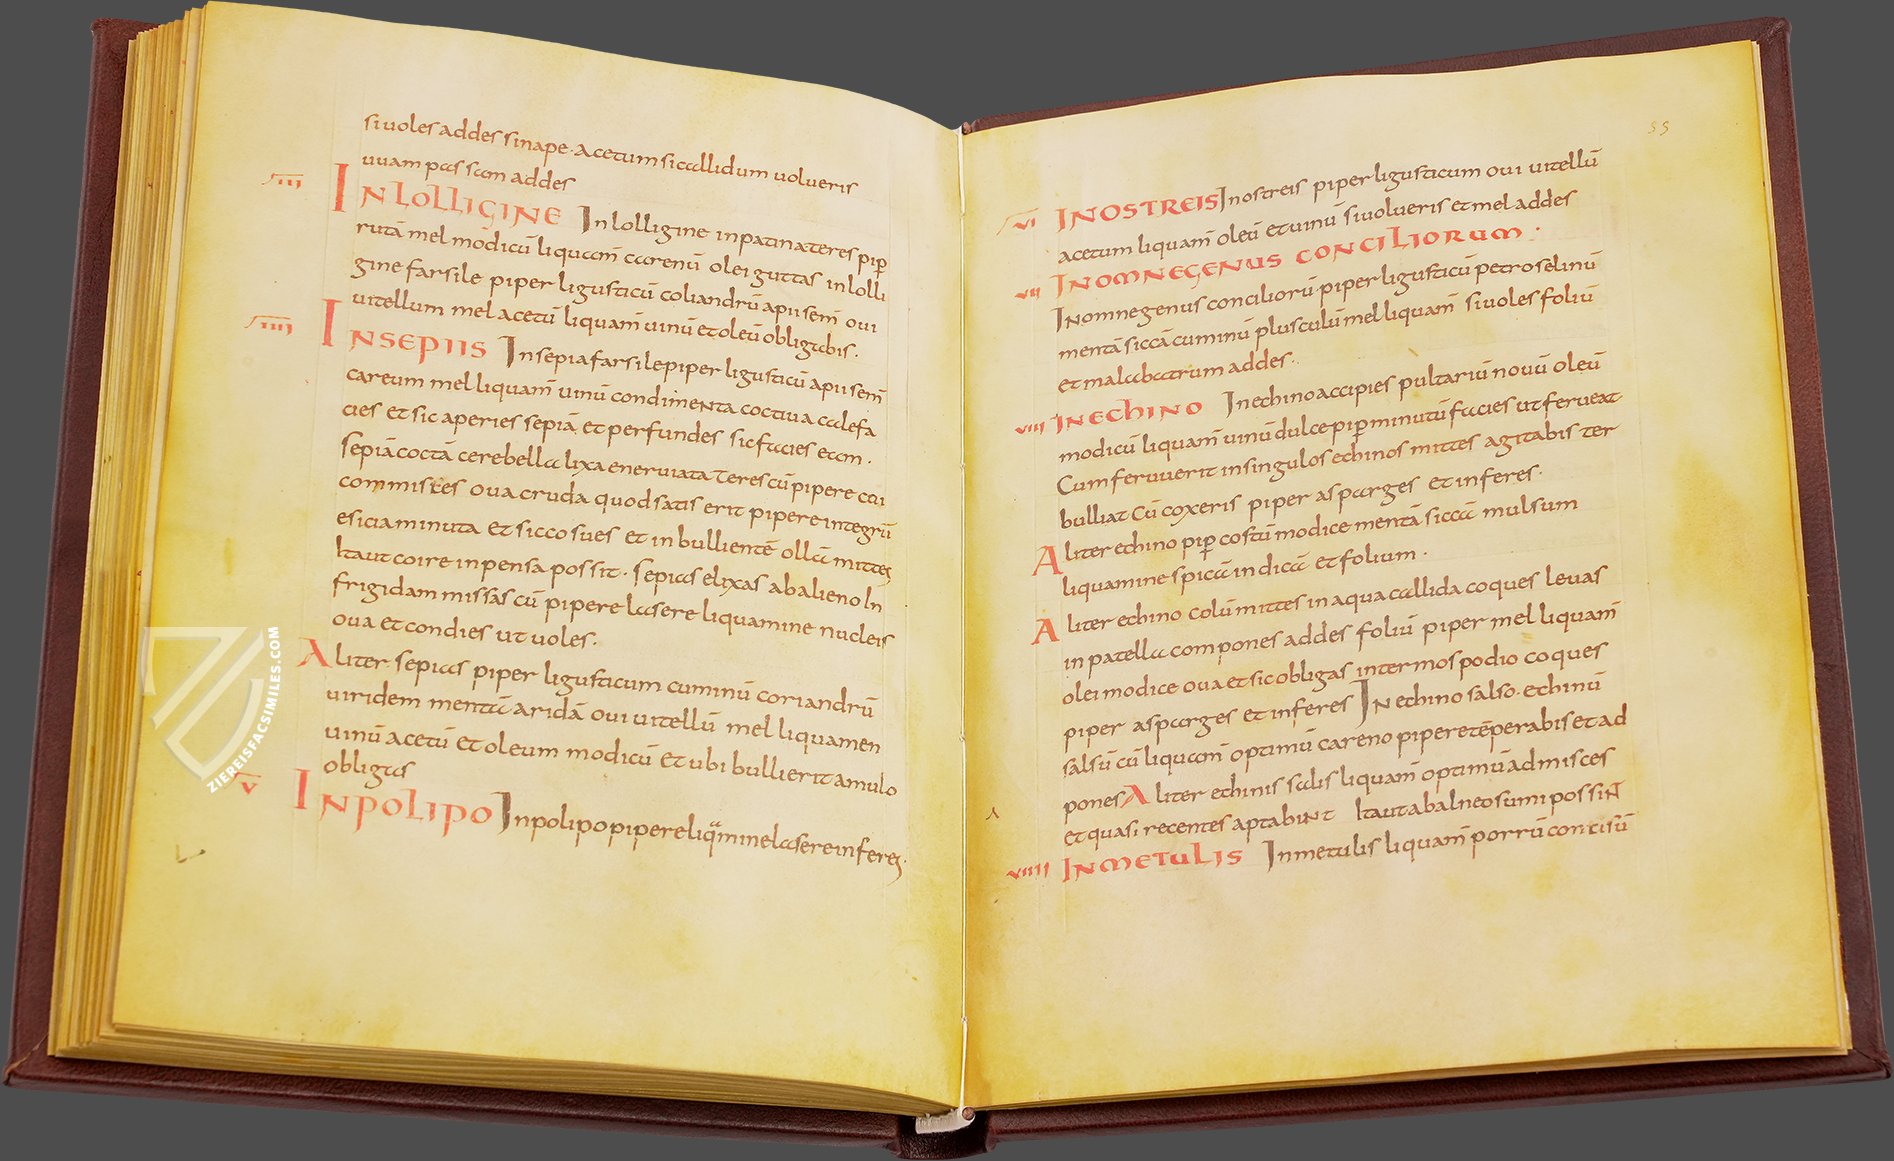 siuoles addes sinape. acetum sicallidum uolueris
uuam passam addes
III INLOLLIGINE Inlolligine inpatinateres pip̄
rutā mel modicū liquam̄ carenū olei guttas inlolli
gine farsile piper ligusticū coliandrū apii sem̄ oui
uitellum mel acetū liquam̄ uinū et oleū obligabis.
IIII INSEPIIS Insepiafarsilepiper ligusticū apii sem̄
careum mel liquam̄ uinū condimenta coctiua calefa
cies et sic aperies sepiā et perfundes sicfacies eam.
sepiācoctā cerebella lixa eneruiata teres cū pipere cui
commisces oua cruda quod satis erit pipere integrū
esiciaminuta et sicco sues et in bullientē ollā mittes
Itaut coire inpensa possit. sepias elixas abalieno In
frigidam missas cū pipere lasere liquamine nucleis
oua et condies ut uoles.
Aliter sepias piper ligusticum cuminū coriandrū
uiridem mentā aridā oui uitellū mel liquamen
uinū acetū et oleum modicū et ubi bullierit amulo
obligas
V INPOLIPO Inpolipo pipere liquamine lasere inferes.
55
VI INOSTREIS Inostreis piper ligusticum oui uitellū
acetum liquam̄ oleū et uinū siuolueris et mel addes
VII INOMNEGENUS CONCILIORUM.
INomnegenus conciliorū piper ligusticū petroselinū
mentā siccā cuminū plusculū mel liquam̄ siuoles foliū
et malabatrum addes.
VIII INECHINO Inechino accipies pultariū nouū oleū
modicū liquam̄ uinū dulce pip̄ minutū facies ut ferueat
Cum feruuerit insingulos echinos mittes agitabis ter
bulliat Cū coxeris piper asparges et inferes.
Aliter echino pip̄ costū modice mentā siccā mulsum
liquamine spicā indicā et folium.
Aliter echino colū mittes in aqua callida coques leuas
in patella compones addes foliū piper mel liquam̄
olei modice oua et sic obligas intermospodio coques
piper asparges et inferes INechino salso. echinū
salsū cū liquam̄ optimū careno pipere tēperabis et ad
pones Aliter echinis salis liquam̄ optimū admisces
et quasi recentes aptabunt Itaut abalneo sumi possiN̄
VIIII INMETULIS Inmetulis liquam̄ porrū concisū
ZIEREISFACSIMILES.COM